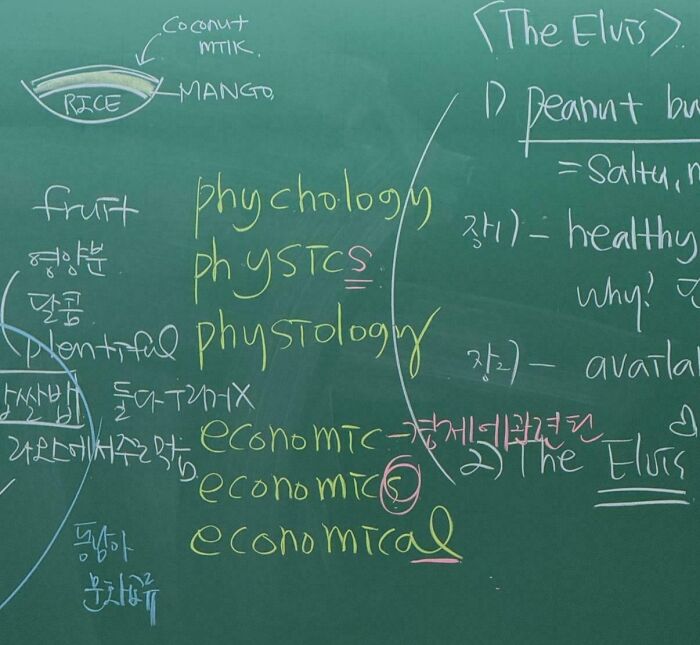 Coconut
MIlK.
RICE
MANGO
fruit
영양분
달콤
plentiful
찹쌀밥
phychology
physics
physiology
economic → 경제에 관련된
economics
economical
동남아
<The Elvis>
1) peanut bu
= Salty,
장1) - healthy
why?
장2) - availa
2) The Elvis